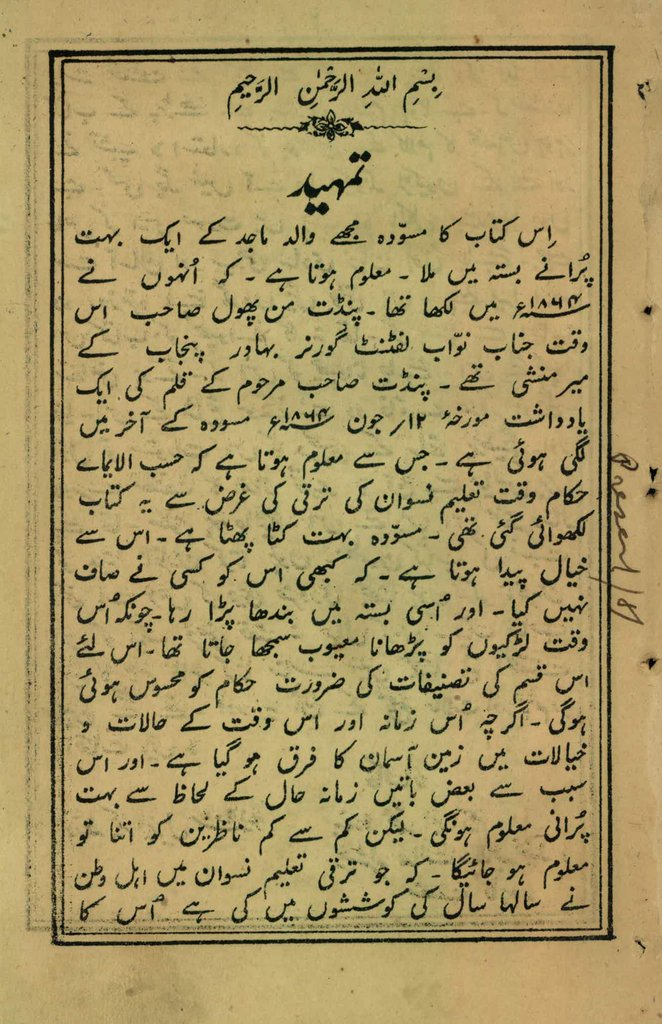 بِسْمِ اللّٰہِ الرَّحْمٰنِ الرَّحِیْمِ
تمہید
اِس کتاب کا مسوّدہ مجھے والد ماجد کے ایک بہت
پُرانے بستہ میں ملا ۔ معلوم ہوتا ہے ۔ کہ اُنہوں نے
۱۸۶۴ء میں لکھا تھا ۔ پنڈت من پھول صاحب اس
وقت جناب نوّاب لفٹنٹ گورنر بہادر پنجاب کے
میر منشی تھے ۔ پنڈت صاحب مرحوم کے قلم کی ایک
یادداشت مورخۂ ۱۲؍ جون ۱۸۶۴ء مسودہ کے آخر میں
لگی ہوئی ہے ۔ جس سے معلوم ہوتا ہے کہ حسب الایماے
حکام وقت تعلیم نسوان کی ترقی کی غرض سے یہ کتاب
لکھوائی گئی تھی ۔ مسوّدہ بہت کٹا پھٹا ہے ۔ اس سے
خیال پیدا ہوتا ہے ۔ کہ کبھی اس کو کسی نے صاف
نہیں کیا ۔ اور اُسی بستہ میں بندھا پڑا رہا ۔ چونکہ اُس
وقت لڑکیوں کو پڑھانا معیوب سمجھا جاتا تھا ۔ اس لئے
اس قسم کی تصنیفات کی ضرورت حکام کو محسوس ہوئی
ہوگی ۔ اگرچہ اُس زمانہ اور اس وقت کے حالات و
خیالات میں زمین آسمان کا فرق ہو گیا ہے ۔ اور اس
سبب سے بعض باتیں زمانہ حال کے لحاظ سے بہت
پُرانی معلوم ہونگی ۔ لیکن کم سے کم ناظرین کو اتنا تو
معلوم ہو جائیگا ۔ کہ جو ترقی تعلیم نسوان میں اہل وطن
نے سالہا سال کی کوششوں میں کی ہے اُس کا